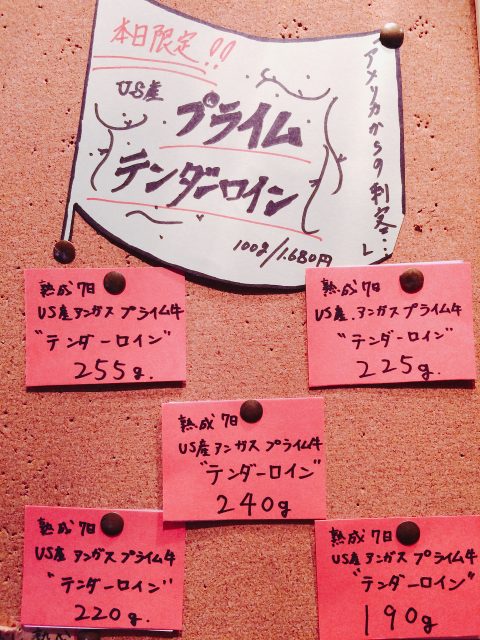 本日限定!!
US産
プライム
テンダーロイン
100g/1,680円
「アメリカからの刺客…」
熟成7日
US産アンガスプライム牛
"テンダーロイン"
255g.
熟成7日
US産.アンガスプライム牛
"テンダーロイン"
225g.
熟成7日
US産アンガスプライム牛
"テンダーロイン"
240g
熟成7日
US産アンガスプライム牛
"テンダーロイン"
220g.
熟成7日
US産アンガスプライム牛
"テンダーロイン"
190g